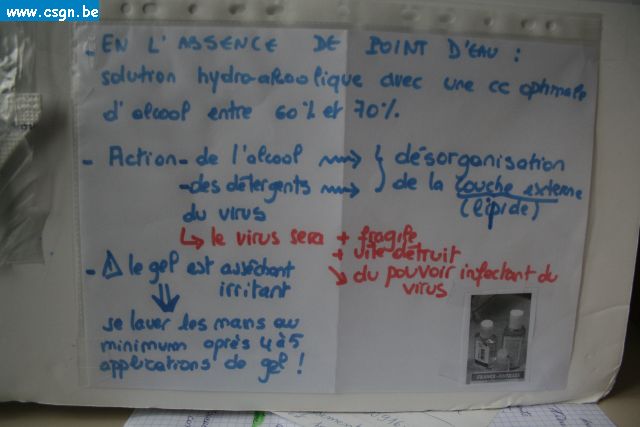 www.csgn.be
- EN L'ABSENCE DE POINT D'EAU :
solution hydro-alcoolique avec une cc optimale
d'alcool entre 60% et 70%.
- Action - de l'alcool ⟿ } désorganisation
- des détergents ⟿ de la couche externe
du virus (lipide)
↳ le virus sera + fragile
+ vite détruit
↘ du pouvoir infectant du
virus
- ⚠ le gel est asséchant
irritant
⇓
se laver les mains au
minimum après 4 à 5
applications de gel !
FRANCE-ANTILLES